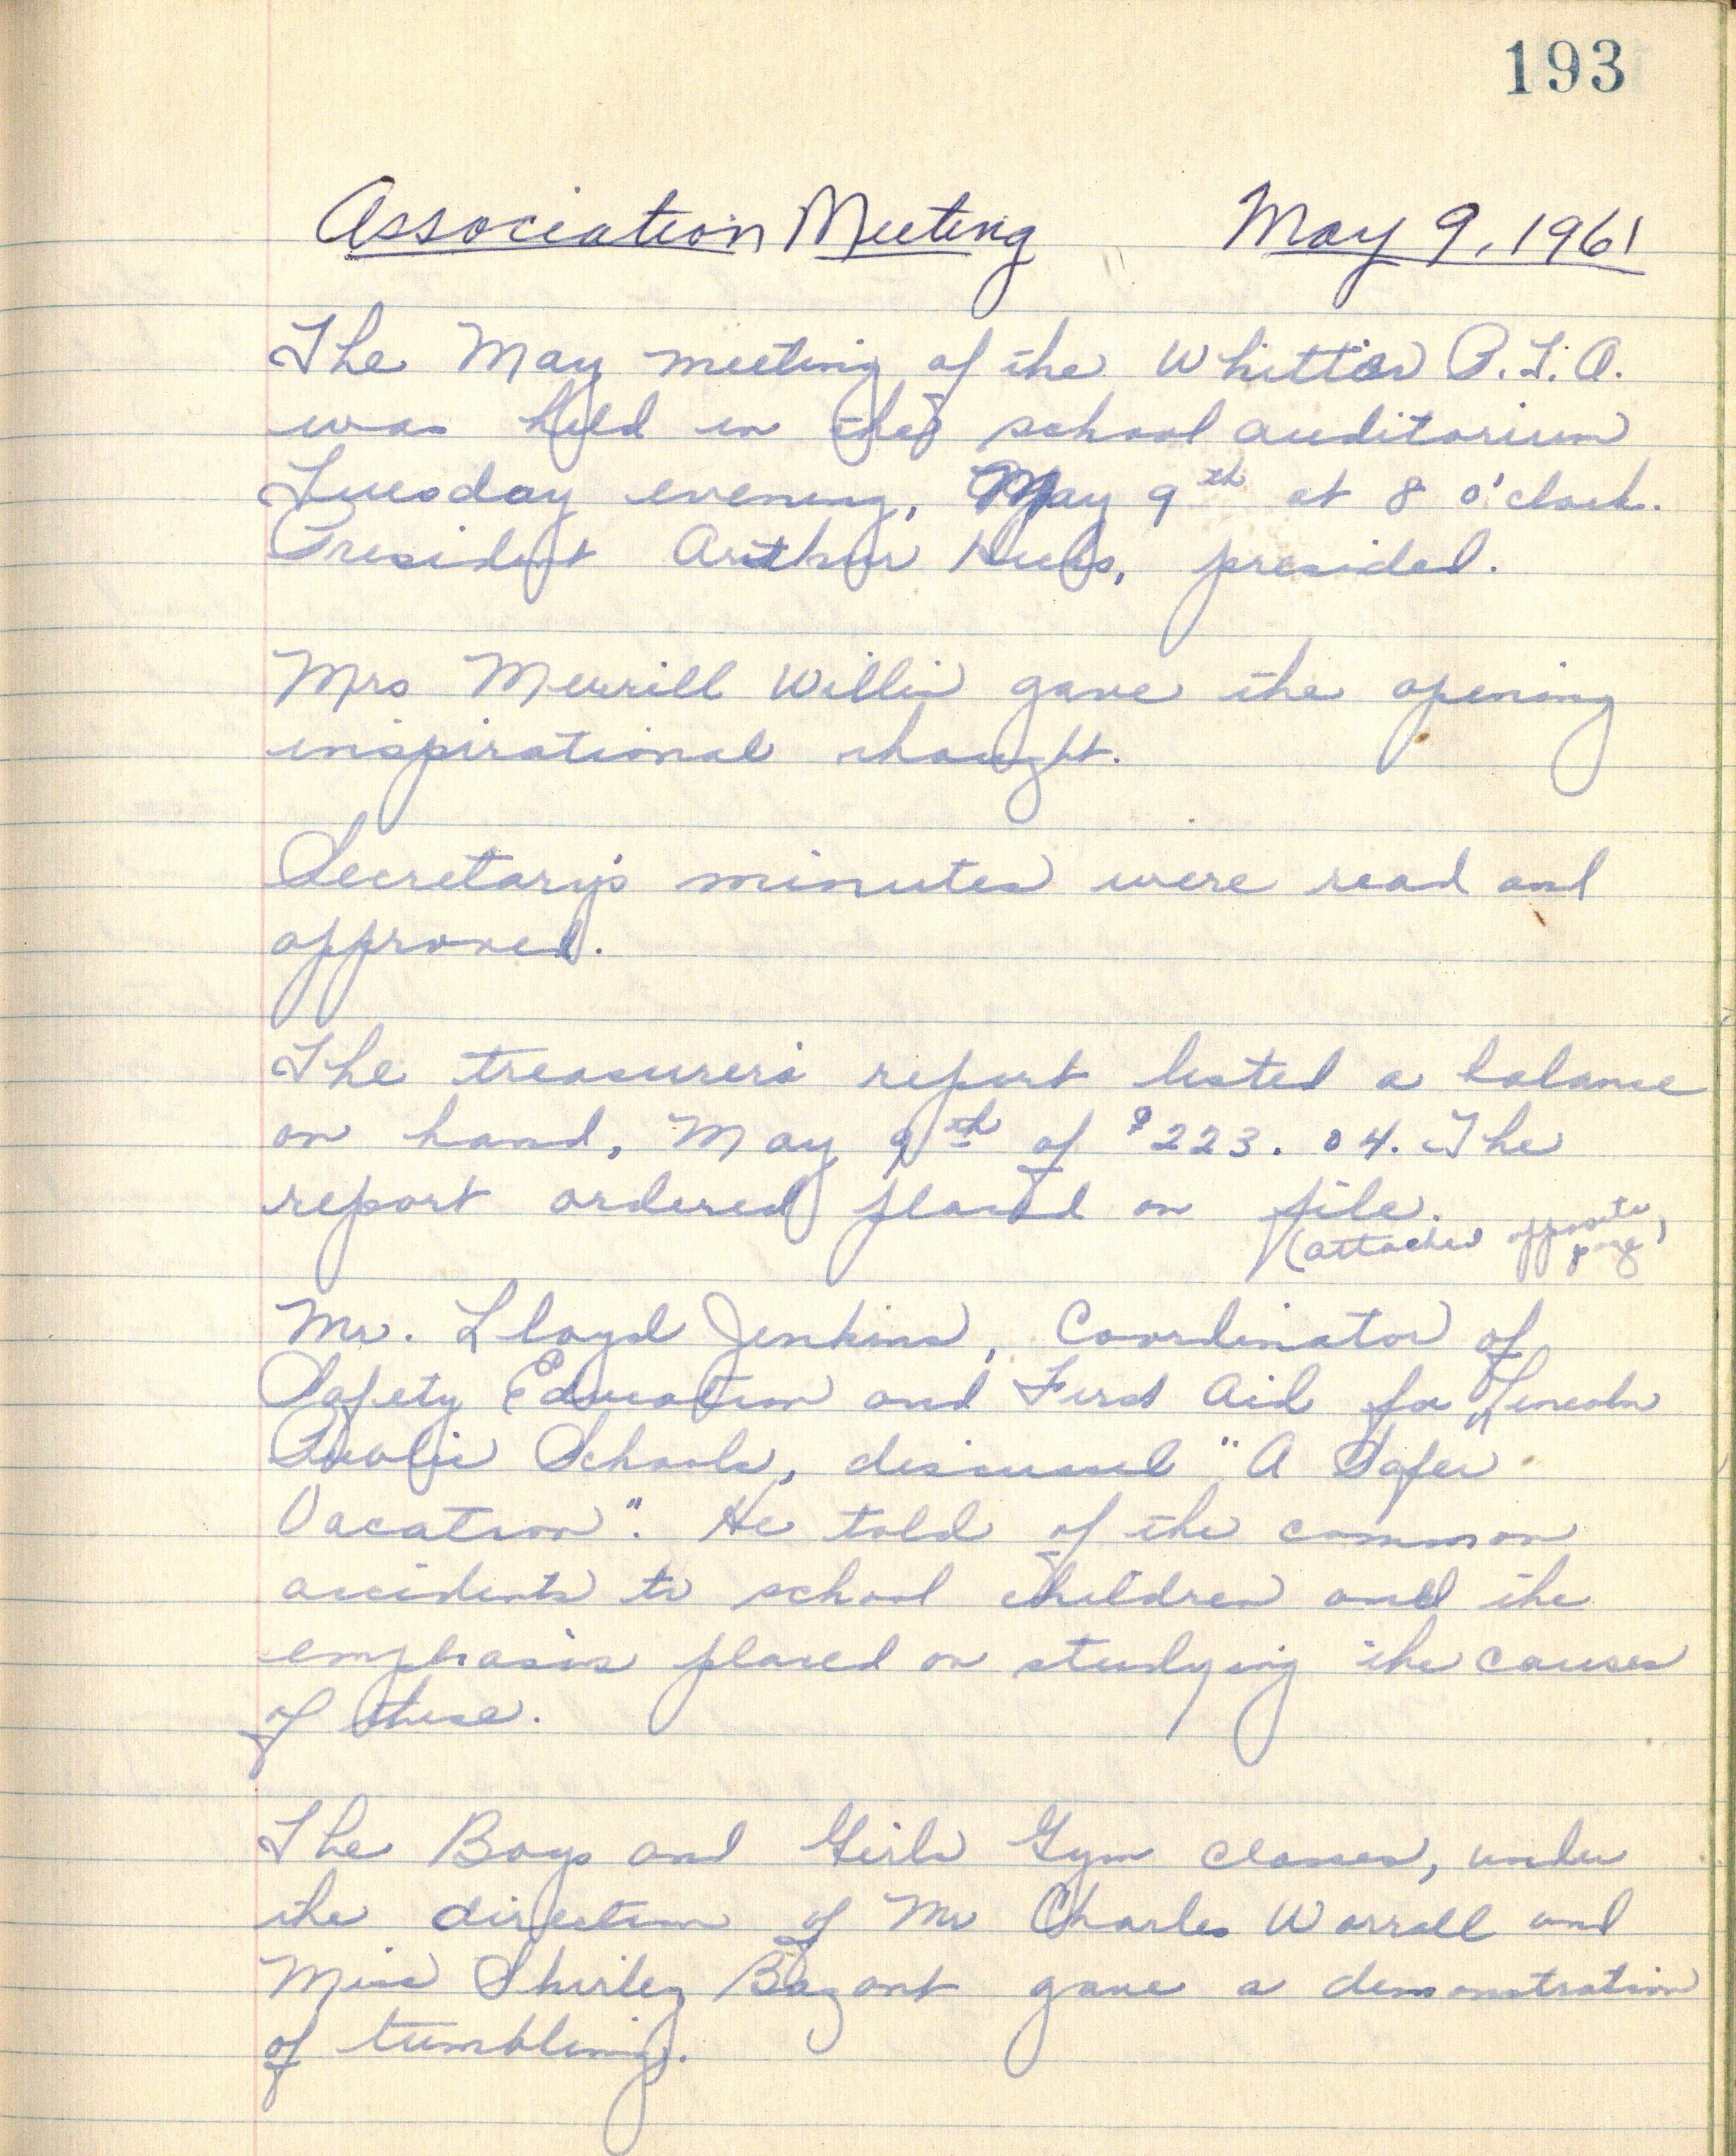 193
Association Meeting May 9, 1961
The May meeting of the Whittier P.T.A.
was held in the school auditorium
Tuesday evening, May 9th at 8 o'clock.
President Arthur presided.
Mrs Merrill Willis gave the opening
inspirational thought.
Secretary's minutes were read and
approved.
The treasurer's report listed a balance
on hand, May 9th of $223.04. The
report ordered placed on file.
(attached opposite page)
Mr. Lloyd Jenkins, Coordinator of
Safety Education and First Aid for Lincoln
Public Schools, discussed "A Safer
Vacation". He told of the common
accidents to school children and the
emphasis placed on studying the causes
of these.
The Boys and Girls Gym classes, under
the direction of Mr Charles Worrall and
Miss Shirley Bazant gave a demonstration
of tumbling.